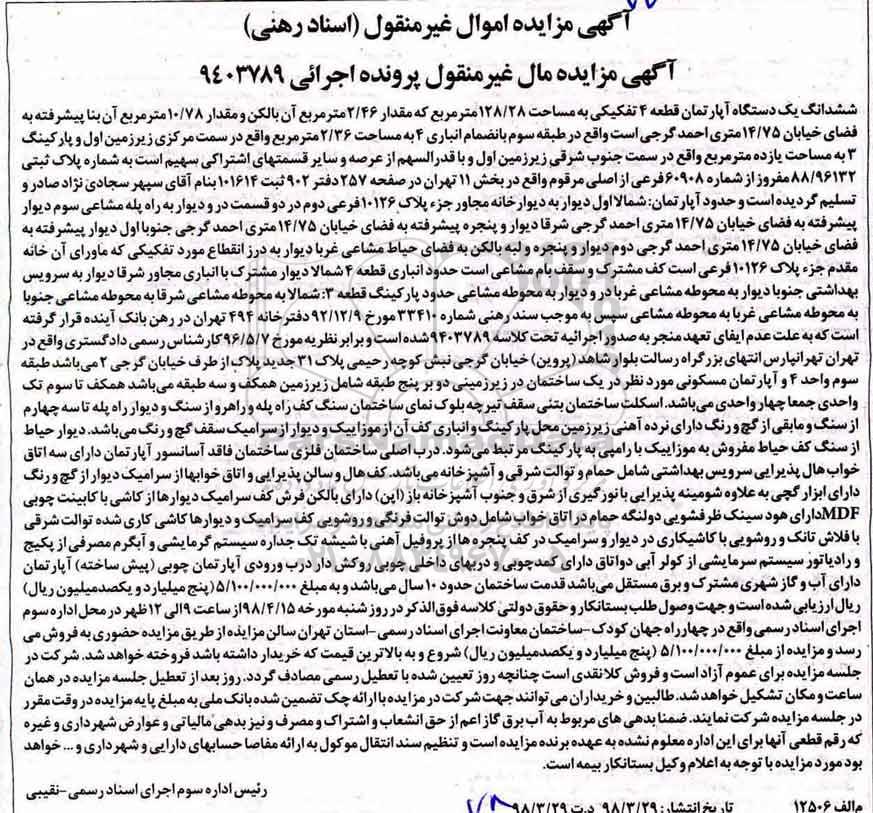 آگهی مزایده اموال غیرمنقول (اسناد رهنی)
آگهی مزایده مال غیرمنقول پرونده اجرائی ۹۴۰۳۷۸۹
ششدانگ یک دستگاه آپارتمان قطعه ۴ تفکیکی به مساحت ۱۲۸/۲۸ مترمربع که مقدار ۲/۴۶ مترمربع آن بالکن و مقدار ۱۰/۷۸ مترمربع آن بنا پیشرفته به
فضای خیابان ۱۴/۷۵ متری احمد گرجی است واقع در طبقه سوم بانضمام انباری ۴ به مساحت ۲/۳۶ مترمربع واقع در سمت مرکزی زیرزمین اول و پارکینگ
۳ به مساحت یازده مترمربع واقع در سمت جنوب شرقی زیرزمین اول و با قدرالسهم از عرصه و سایر قسمتهای اشتراکی سهیم است به شماره پلاک ثبتی
۸۸/۹۶۱۳۲ مفروز از شماره ۶۰۹۰۸ فرعی از اصلی مرقوم واقع در بخش ۱۱ تهران در صفحه ۲۵۷ دفتر ۹۰۲ ثبت ۱۰۱۶۱۴ بنام آقای سپهر سجادی نژاد صادر و
تسلیم گردیده است و حدود آپارتمان: شمالا اول دیوار به دیوارخانه مجاور جزء پلاک ۱۰۱۲۶ فرعی دوم در دو قسمت در و دیوار به راه پله مشاعی سوم دیوار
پیشرفته به فضای خیابان ۱۴/۷۵ متری احمد گرجی شرقا دیوار و پنجره پیشرفته به فضای خیابان ۱۴/۷۵ متری احمد گرجی جنوبا اول دیوار پیشرفته به
فضای خیابان ۱۴/۷۵ متری احمد گرجی دوم دیوار و پنجره و لبه بالکن به فضای حیاط مشاعی غربا دیوار به درز انقطاع مورد تفکیکی که ماورای آن خانه
مقدم جزء پلاک ۱۰۱۲۶ فرعی است کف مشترک و سقف بام مشاعی است حدود انباری قطعه ۴ شمالا دیوار مشترک با انباری مجاور شرقا دیوار به سرویس
بهداشتی جنوبا دیوار به محوطه مشاعی غربا در و دیوار به محوطه مشاعی حدود پارکینگ قطعه ۳: شمالا به محوطه مشاعی شرقا به محوطه مشاعی جنوبا
به محوطه مشاعی غربا به محوطه مشاعی سپس به موجب سند رهنی شماره ۳۳۴۱۰ مورخ ۹۲/۱۲/۹ دفترخانه ۴۹۴ تهران در رهن بانک آینده قرار گرفته
است که به علت عدم ایفای تعهد منجر به صدور اجرائیه تحت کلاسه ۹۴۰۳۷۸۹ شده است و برابر نظریه مورخ ۹۶/۵/۷ کارشناس رسمی دادگستری واقع در
تهران تهرانپارس انتهای بزرگراه رسالت بلوار شاهد (پروین) خیابان گرجی نبش کوچه رحیمی پلاک ۳۱ جدید پلاک از طرف خیابان گرجی ۲ می‌باشد طبقه
سوم واحد ۴ و آپارتمان مسکونی مورد نظر در یک ساختمان در زیرزمینی دو بر پنج طبقه شامل زیرزمین همکف و سه طبقه می‌باشد همکف تا سوم تک
واحدی جمعا چهار واحدی می‌باشد. اسکلت ساختمان بتنی سقف تیرچه بلوک نمای ساختمان سنگ کف راه پله و راهرو از سنگ و دیوار راه پله تا سه چهارم
از سنگ و مابقی از گچ و رنگ دارای نرده آهنی زیرزمین محل پارکینگ و انباری کف آن از موزاییک و دیوار از سرامیک سقف گچ و رنگ می‌باشد. دیوار حیاط
از سنگ کف حیاط مفروش به موزاییک با رامپی به پارکینگ مرتبط می‌شود. درب اصلی ساختمان فلزی ساختمان فاقد آسانسور آپارتمان دارای سه اتاق
خواب هال پذیرایی سرویس بهداشتی شامل حمام و توالت شرقی و آشپزخانه می‌باشد. کف هال و سالن پذیرایی و اتاق خوابها از سرامیک دیوار از گچ و رنگ
دارای ابزار گچی به علاوه شومینه پذیرایی با نورگیری از شرق و جنوب آشپزخانه باز (اپن) دارای بالکن فرش کف سرامیک دیوارها از کاشی با کابینت چوبی
MDF دارای هود سینک ظرفشویی دولنگه حمام در اتاق خواب شامل دوش توالت فرنگی و روشویی کف سرامیک و دیوارها کاشی کاری شده توالت شرقی
با فلاش تانک و روشویی با کاشیکاری در دیوار و سرامیک در کف پنجره ها از پروفیل آهنی با شیشه تک جداره سیستم گرمایشی و آبگرم مصرفی از پکیج
و رادیاتور سیستم سرمایشی از کولر آبی دو اتاق دارای کمدچوبی و دربهای داخلی چوبی روکش دار درب ورودی آپارتمان چوبی (پیش ساخته) آپارتمان
دارای آب و گاز شهری مشترک و برق مستقل می‌باشد قدمت ساختمان حدود ۱۰ سال می‌باشد و به مبلغ ۵/۱۰۰/۰۰۰/۰۰۰ (پنج میلیارد و یکصدمیلیون ریال)
ریال ارزیابی شده است و جهت وصول طلب بستانکار و حقوق دولتی کلاسه فوق الذکر در روز شنبه مورخه ۹۸/۴/۱۵ از ساعت ۹ الی ۱۲ ظهر در محل اداره سوم
اجرای اسناد رسمی واقع در چهارراه جهان کودک -ساختمان معاونت اجرای اسناد رسمی -استان تهران سالن مزایده از طریق مزایده حضوری به فروش می
رسد و مزایده از مبلغ ۵/۱۰۰/۰۰۰/۰۰۰ (پنج میلیارد و یکصدمیلیون ریال) شروع و به بالاترین قیمت که خریدار داشته باشد فروخته خواهد شد. شرکت در
جلسه مزایده برای عموم آزاد است و فروش کلا نقدی است چنانچه روز تعیین شده با تعطیل رسمی مصادف گردد. روز بعد از تعطیل جلسه مزایده در همان
ساعت و مکان تشکیل خواهد شد. طالبین و خریداران می‌توانند جهت شرکت در مزایده با ارائه چک تضمین شده بانک ملی به مبلغ پایه مزایده در وقت مقرر
در جلسه مزایده شرکت نمایند. ضمنا بدهی های مربوط به آب برق گاز اعم از حق انشعاب و اشتراک و مصرف و نیز بدهی مالیاتی و عوارض شهرداری و غیره
که رقم قطعی آنها برای این اداره معلوم نشده به عهده برنده مزایده است و تنظیم سند انتقال موکول به ارائه مفاصا حسابهای دارایی و شهرداری و ... خواهد
بود مورد مزایده با توجه به اعلام وکیل بستانکار بیمه است.
رئیس اداره سوم اجرای اسناد رسمی -نقیبی
م الف ۱۲۵۰۶ تاریخ انتشار: ۹۸/۳/۲۹ د.ت ۹۸/۳/۲۹